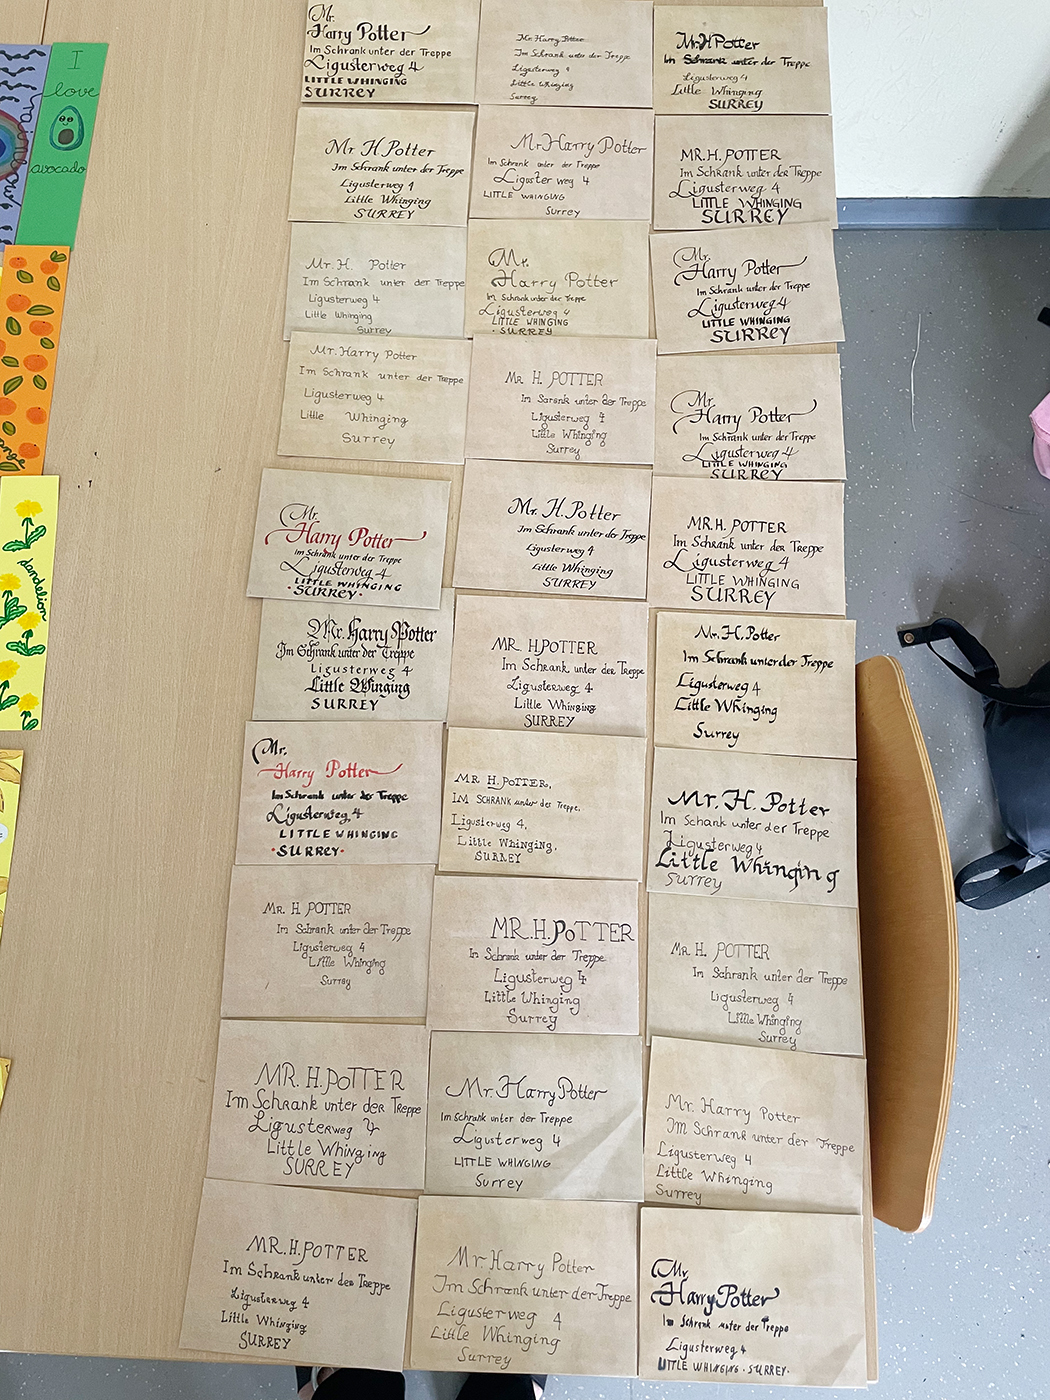 I
love
avocado
dandelion
Mr.
Harry Potter
Im Schrank unter der Treppe
Ligusterweg 4
LITTLE WHINGING
SURREY
Mr. Harry Potter
Im Schrank unter der Treppe
Ligusterweg 4
Little Whinging
Surrey
Mr. H Potter
Im Schrank unter der Treppe
Ligusterweg 4
Little Whinging
SURREY
Mr H Potter
Im Schrank unter der Treppe
Ligusterweg 4
Little Whinging
SURREY
Mr Harry Potter
Im Schrank unter der Treppe
Liguster weg 4
LITTLE WHINGING
Surrey
MR. H. POTTER
Im Schrank unter der Treppe
Ligusterweg 4
LITTLE WHINGING
SURREY
Mr. H. Potter
Im Schrank unter der Treppe
Ligusterweg 4
Little Whinging
Surrey
Mr.
Harry Potter
Im Schrank unter der Treppe
Ligusterweg 4
LITTLE WHINGING
· SURREY
Mr.
Harry Potter
Im Schrank unter der Treppe
Ligusterweg 4
LITTLE WHINGING
SURREY
Mr. Harry Potter
Im Schrank unter der Treppe
Ligusterweg 4
Little Whinging
Surrey
MR H. POTTER
Im Sarank unter der Treppe
Ligusterweg 4
Little Whinging
Surrey
Mr.
Harry Potter
Im Schrank unter der Treppe
Ligusterweg 4
LITTLE WHINGING
SURREY
Mr.
Harry Potter
im Schrank unter der Treppe
Ligusterweg 4
LITTLE WHINGING
· SURREY ·
Mr. H. Potter
Im Schrank unter der Treppe
Ligusterweg 4
Little Whinging
SURREY
MR. H. POTTER
Im Schrank unter der Treppe
Ligusterweg 4
LITTLE WHINGING
SURREY
Mr. Harry Potter
Im Schrank unter der Treppe
Ligusterweg 4
Little Whinging
SURREY
MR. H.POTTER
Im Schrank unter der Treppe
Ligusterweg 4
Little Whinging
SURREY
Mr. H. Potter
Im Schrank unter der Treppe
Ligusterweg 4
Little Whinging
Surrey
Mr.
Harry Potter
Im Schrank unter der Treppe
Ligusterweg 4
LITTLE WHINGING
· SURREY ·
MR H. POTTER,
IM SCHRANK unter der Treppe,
Ligusterweg 4,
Little Whinging,
SURREY
Mr. H. Potter
Im Schank unter der Treppe
Ligusterweg 4
Little Whinging
Surrey
MR. H POTTER
Im Schrank unter der Treppe
Ligusterweg 4
Little Whinging
Surrey
MR. H. POTTER
Im Schrank unter der Treppe
Ligusterweg 4
Little Whinging
Surrey
MR H. POTTER
Im Schrank unter der Treppe
Ligusterweg 4
Little Whinging
Surrey
MR. H. POTTER
Im Schrank unter der Treppe
Ligusterweg 4
Little Whinging
SURREY
Mr. Harry Potter
Im Schrank unter der Treppe
Ligusterweg 4
LITTLE WHINGING
Surrey
Mr. Harry Potter
Im Schrank unter der Treppe
Ligusterweg 4
Little Whinging
Surrey
MR. H. POTTER
Im Schrank unter der Treppe
Ligusterweg 4
Little Whinging
SURREY
Mr Harry Potter
Im Schrank unter der Treppe
Ligusterweg 4
Little Whinging
Surrey
Mr
Harry Potter
Im Schrank unter der Treppe
Ligusterweg 4
LITTLE WHINGING · SURREY ·